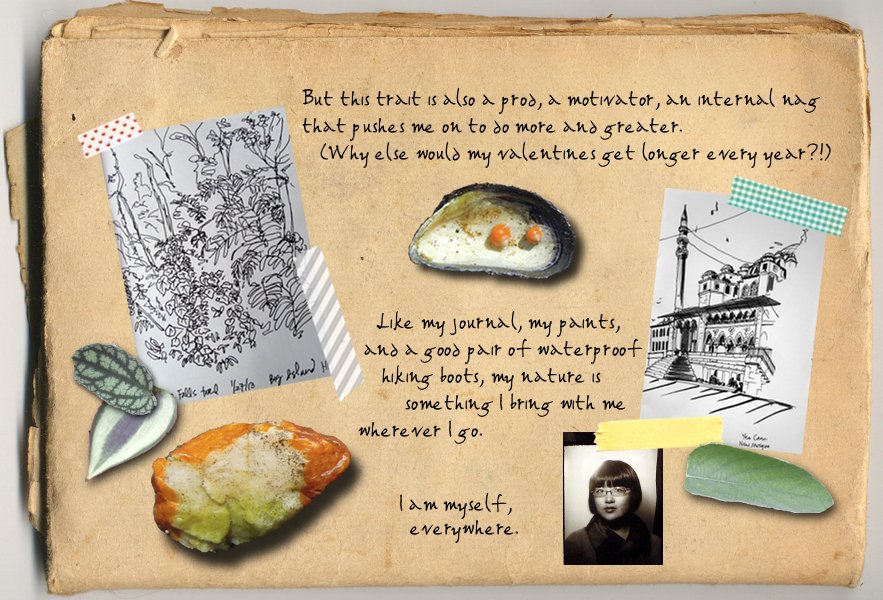 But this trait is also a prod, a motivator, an internal nag
that pushes me on to do more and greater.
(Why else would my valentines get longer every year?!)
Like my journal, my paints,
and a good pair of waterproof
hiking boots, my nature is
something I bring with me
wherever I go.
I am myself,
everywhere.
Falls trail 1/27/13 Big Island H
Yeni Cami